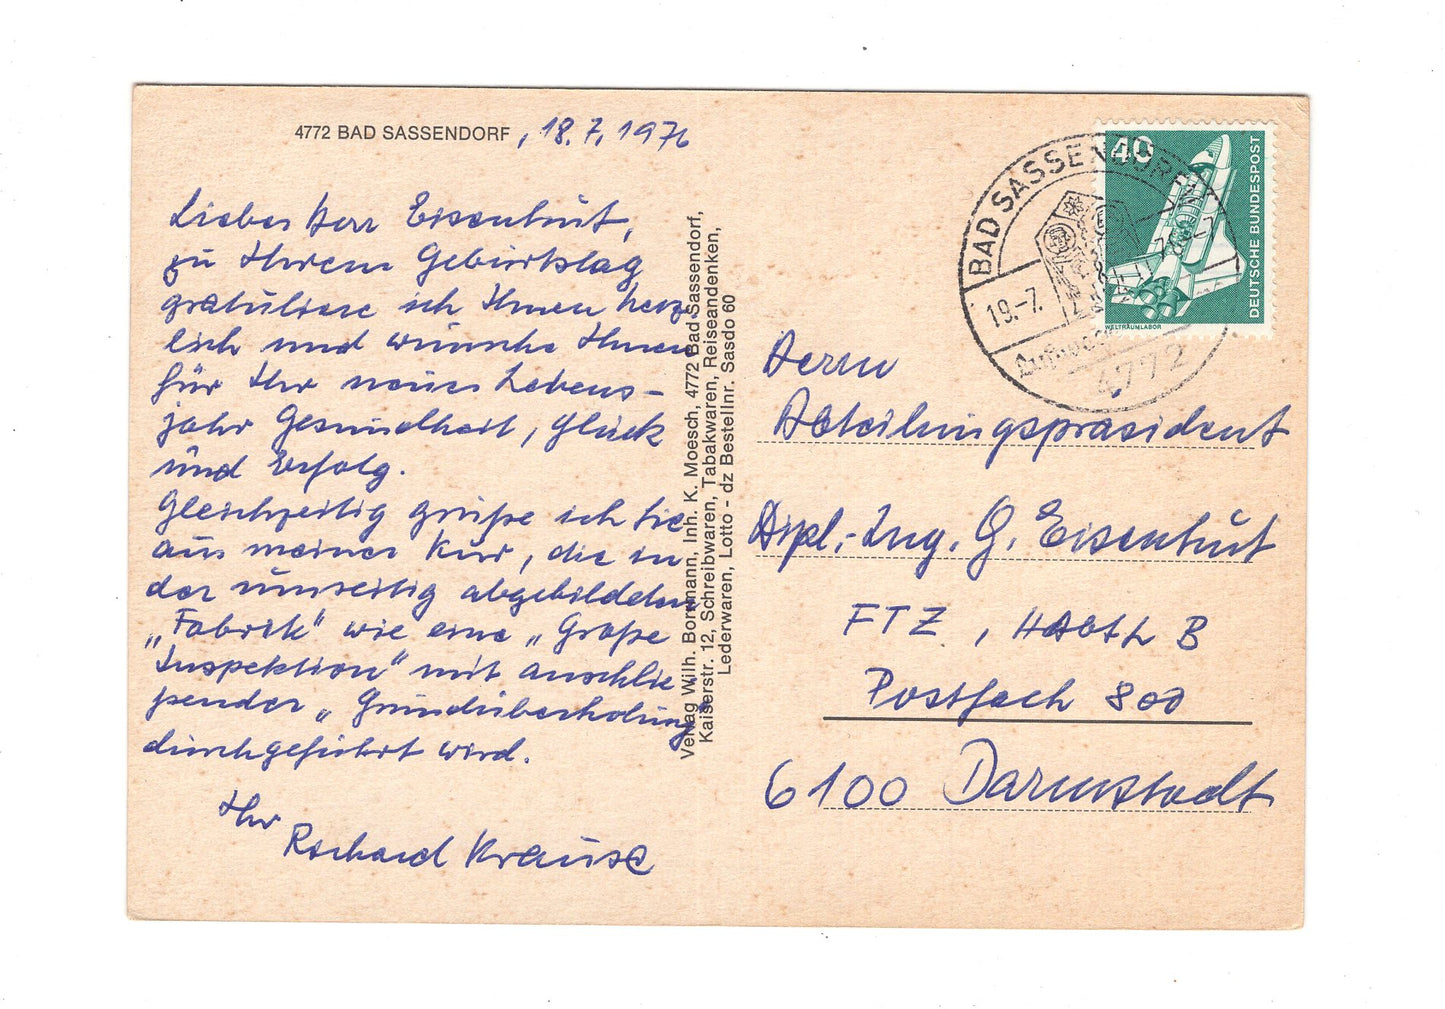 4772 BAD SASSENDORF, 18.7.1976
Lieber Herr Eisenhut,
zu Ihrem Geburtstag
gratuliere ich Ihnen herz-
lich und wünsche Ihnen
für Ihr neues Lebens-
jahr Gesundheit, Glück
und Erfolg.
Gleichzeitig grüße ich Sie
aus meiner Kur, die in
der umseitig abgebildeten
„Fabrik" wie eine „Große
Inspektion" mit anschlie
ßender „Grundüberholung"
durchgeführt wird.
Ihr
Richard Krause
Verlag Wilh. Borgmann, Inh. K. Moesch, 4772 Bad Sassendorf,
Kaiserstr. 12, Schreibwaren, Tabakwaren, Reiseandenken,
Lederwaren, Lotto - dz Bestellnr. Sasdo 60
BAD SASSENDORF
19.-7.
4772
40
DEUTSCHE BUNDESPOST
WELTRAUMLABOR
Herrn
Abteilungspräsident
Dipl.-Ing. G. Eisenhut
FTZ, HAbtl B
Postfach 800
6100 Darmstadt